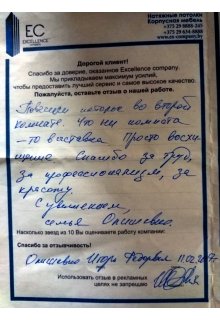 EC
EXCELLENCE
Натяжные потолки
Корпусная мебель
+375 29 8888-245
+375 29 634 8888
www.ec-company.by
Дорогой клиент!
Спасибо за доверие, оказанное Excellence company.
Мы прикладываем максимум усилий,
чтобы предоставить лучший сервис и самое высокое качество.
Пожалуйста, оставьте отзыв о нашей работе.
которое во второй
комнате. Что ни комната
– то выставка. Просто восхи-
щение. Спасибо за труд,
за профессионализм, за
красоту.
С уважением,
семья
Насколько звезд из 10 Вы оцениваете работу компании:
Спасибо за отзывчивость!
Игорь 11.02.2017г.
Использовать отзыв в рекламных
целях не запрещаю